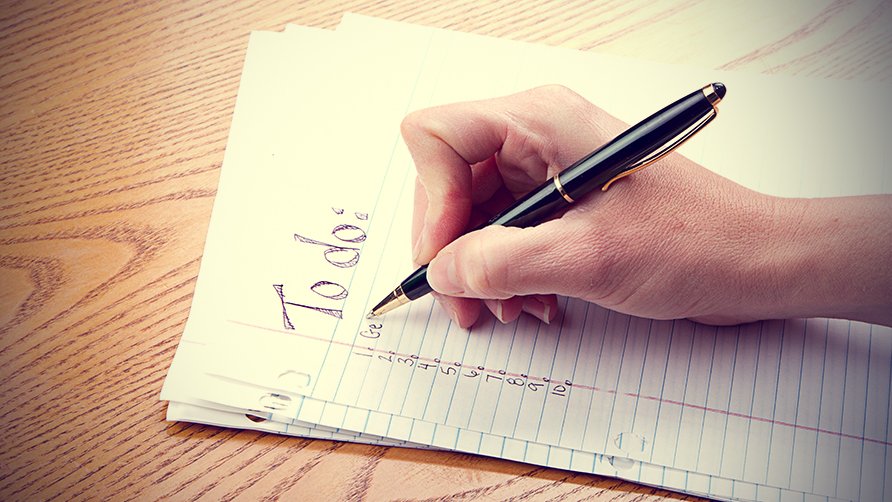 To do:
1. Ge
2.
3.
4.
5.
6.
7.
8.
9.
10.